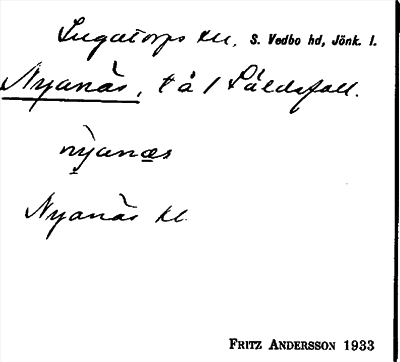 Lugatorps kn, S. Vedbo hd, Jönk. l.
Nyanäs, t å 1 Såldsfall.
nyanæs
Nyanäs kl
FRITZ ANDERSSON 1933